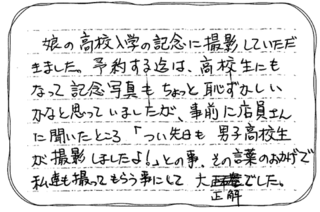 娘の高校入学の記念に撮影していただ
きました。予約する迄は、高校生にも
なって記念写真もちょっと恥ずかしい
かなと思っていましたが、事前に店員さん
に聞いたところ「つい先日も男子高校生
が撮影しましたよ!」との事、その言葉のおかげで
私達も撮ってもらう事にして大正解でした。
正解